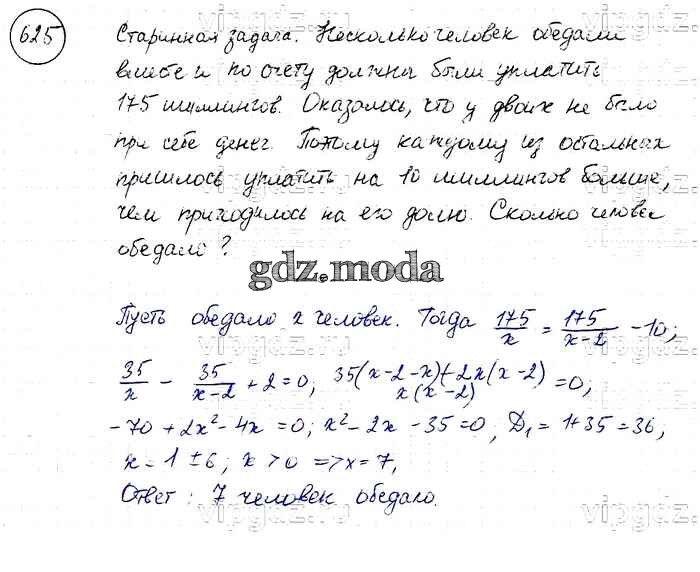 625
Старинная задача. Несколько человек обедали
вместе и по счету должны были уплатить
175 шиллингов. Оказалось, что у двоих не было
при себе денег. Потому каждому из остальных
пришлось уплатить на 10 шиллингов больше,
чем приходилось на его долю. Сколько человек
обедало?
gdz.moda
Пусть обедало x человек. Тогда 175/x = 175/(x-2) - 10;
35/x - 35/(x-2) + 2 = 0; (35(x-2-x)+2x(x-2))/(x(x-2)) = 0;
-70 + 2x² - 4x = 0; x² - 2x - 35 = 0, D₁ = 1+35 = 36,
x = 1 ± 6; x > 0 => x = 7,
Ответ: 7 человек обедало.
vipgdz.ru